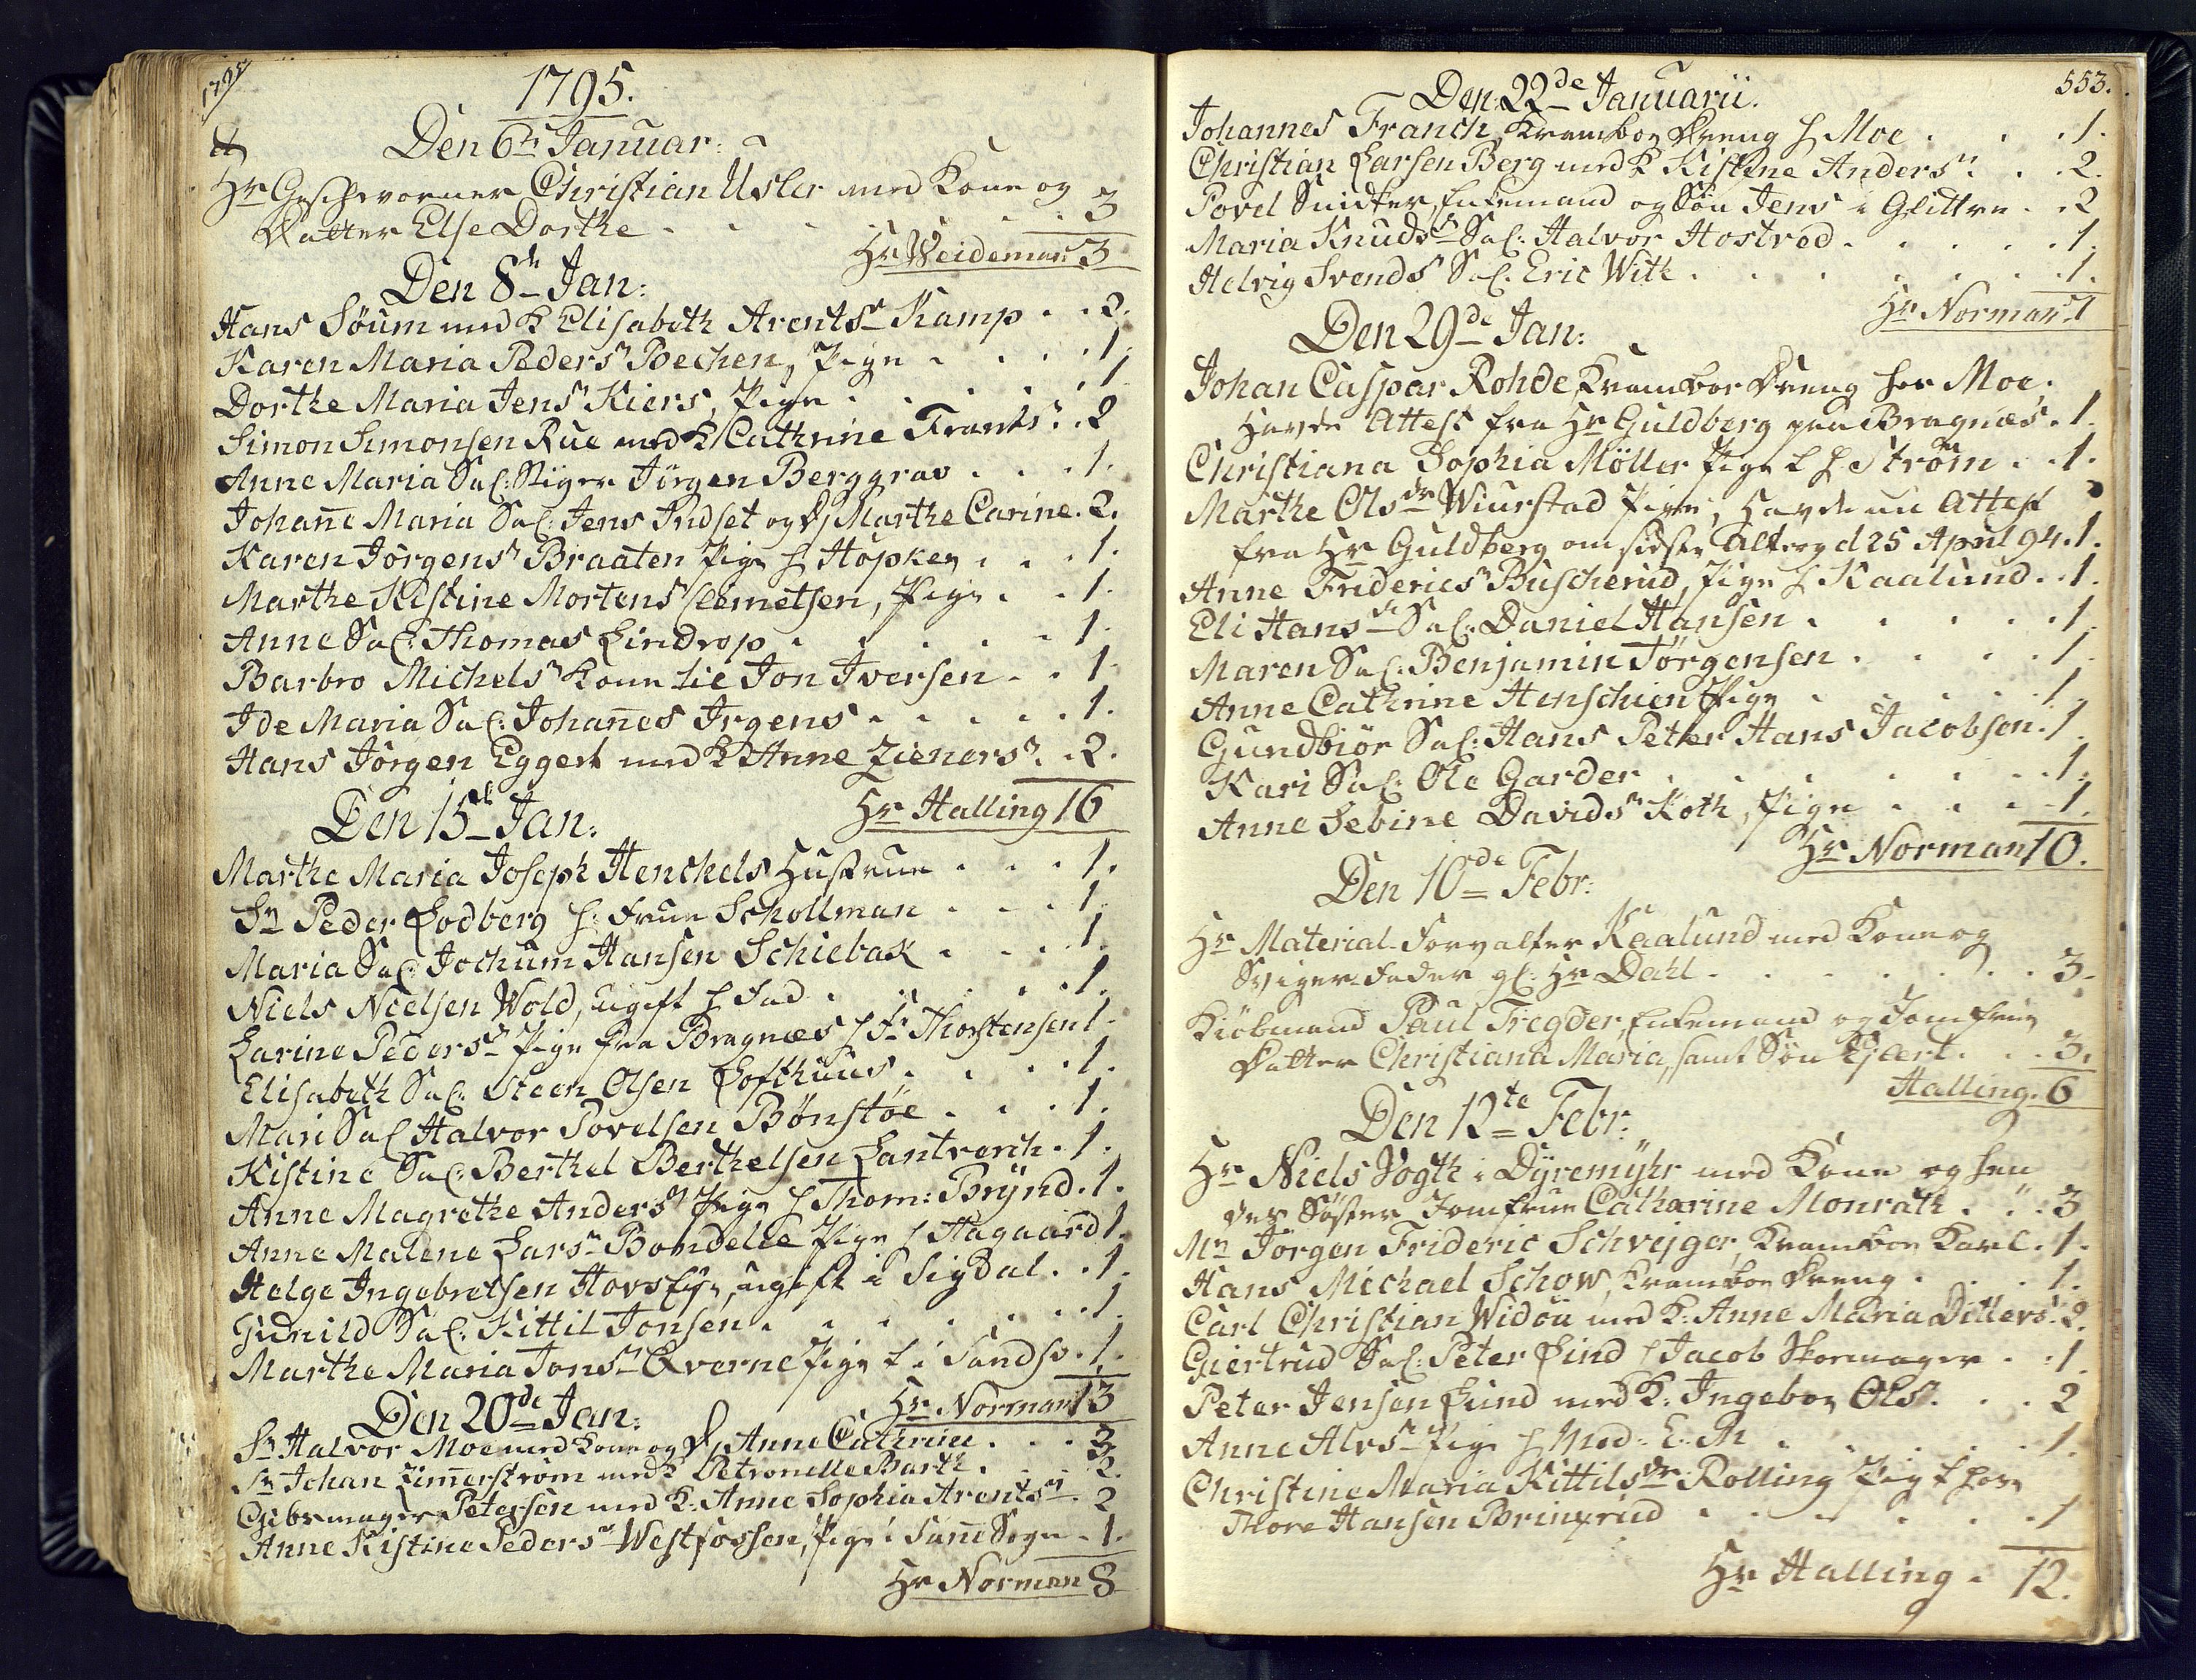 1795
1795.
Den 6te Januar:
Hr Geschworner Christian Usler med Kone og
Datter Else Dorthe . . . 3
Hr Weideman 3
Den 8de Jan:
Hans Söum med K Elisabeth Arentsd Kamp . . 2.
Karen Maria Pedersd Bechen, Pige . . . 1.
Dorthe Maria Jensd Kiers, Pige . . . 1
Simon Simonsen Rue med K Cathrine Frantsd . . 2
Anne Maria Sal: Stiger Jörgen Berggrav . . . 1.
Johañe Maria Sal: Jens Indset og D Marthe Carine . 2.
Karen Jörgensd Braaten Pige h Höpken . . . 1.
Marthe Kistine Mortensd Clemetsen, Pige . . 1.
Anne Sal: Thomas Lindrop . . . 1.
Barbro Michelsd Kone til Jon Iversen . . 1.
Ide Maria Sal: Johañes Irgens . . . 1.
Hans Jörgen Eggert med K Anne Zienersd . . 2.
Hr Halling 16
Den 15de Jan:
Marthe Maria Joseph Henchels Hustrue . . . 1.
Sr Peder Lodberg h: Frue Schollman . . . 1.
Maria Sal: Jochum Hansen Schiebak . . . 1.
Niels Nielsen Wold, ugift h Fad . . . 1.
Larine Pedersd Pige fra Bragnæs h Fr Thorstensen 1.
Elisabeth Sal: Steen Olsen Lofthuus . . . 1.
Mari Sal Halvor Povelsen Bönstöe . . . 1.
Kistine Sal: Berthel Berthelsen Lantverch . 1.
Anne Magrethe Andersd Pige h Thom: Brÿnd . 1.
Anne Malene Larsd Bondelie Pige h Hagaard 1.
Helge Ingebretsen Hovs Eje, ugift i Sigdal . . 1.
Gunild Sal: Kittil Jonsen . . . 1
Marthe Maria Jonsd Qverne Pige t i Sandsv . 1.
Hr Norman 13
Den 20de Jan:
Sr Halvor Moe med Kone og D Anne Cathrine . . . 3
Sr Johan Zimerström med K Petronelle Barth . . . 2.
Gibsmager Petersen med K: Anne Sophia Arentsd . 2
Anne Kistine Pedersd Westfossen, Pige i Sañe Sogn . 1.
Hr Norman 8
553.
Den 22de Januarii.
Johannes Franch, Kramboe Dreng h Moe . . . 1.
Christian Larsen Berg med K Kistine Andersd . . . 2.
Povel Snidker, Enkemand og Sön Jens i Glittre . . 2
Maria Knudsd Sal: Halvor Hostved . . . 1.
Helvig Svends Sal: Eric With . . . 1.
Hr Norman 7
Den 29de Jan:
Johan Caspar Rohde, Kramboe Dreng hos Moe,
havde Attest fra Hr Guldberg paa Bragnæs . 1.
Christiana Sophia Möller Pige t h Ström . . 1.
Marthe Olsdr Wiurstad Pige, havde en Attest
fra Hr Guldberg om sidste Altergd 25 April 94. 1.
Anne Fridericsd Buscherud, Pige h Kaalund . . 1.
Eli Hansd Sal: Daniel Hansen . . . 1.
Maren Sal: Benjamin Jörgensen . . . 1.
Anne Cathrine Henschien Pige . . . 1.
Gundbiör Sal: Hans Petter Hans Jacobsen . 1.
Kari Sal: Ole Garder . . . 1.
Anne Sebine Davidsd Koth, Pige . . . 1.
Hr Norman 10.
Den 10de Febr:
Hr Material-Forvalter Kaalund med Kone og
Sviger-Fader gl: Hr Dahl . . . 3.
Kiöbmand Paul Tregder, Enkemand og Jomfrue
Datter Christiana Maria, samt Sön Eilert . . . 3.
Halling . 6
Den 12te Febr:
Hr Niels Vogth i Dÿremÿhr med Kone og hen
des Söster Jomfrue Catharine Monrath . . . 3
Mr Jörgen Frideric Schvejger, Kramboe Karl . 1.
Hans Michael Schow, Kramboe Dreng . . . 1.
Carl Christian Widöu med K: Anne Maria Ditlevsd 2.
Giertrud Sal: Peter Lind h Jacob Skomager . . 1.
Peter Jensen Lund med K: Ingebor Olsd . . . 2
Anne Alvsd Pige h Mod: E: M . . . 1.
Christine Maria Kittilsdr Rolling Pige t hos
Thore Hansen Brinxrud . . . 1
Hr Halling . 12.